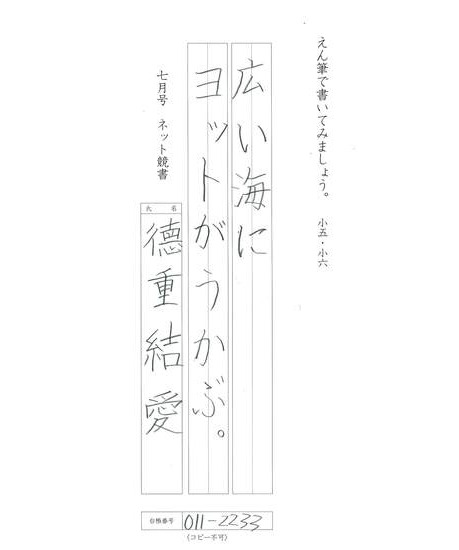 えん筆で書いてみましょう。　小五・小六
広い海に
ヨットがうかぶ。
七月号　ネット競書
氏　名
德重結愛
台帳番号 011-2233
(コピー不可)